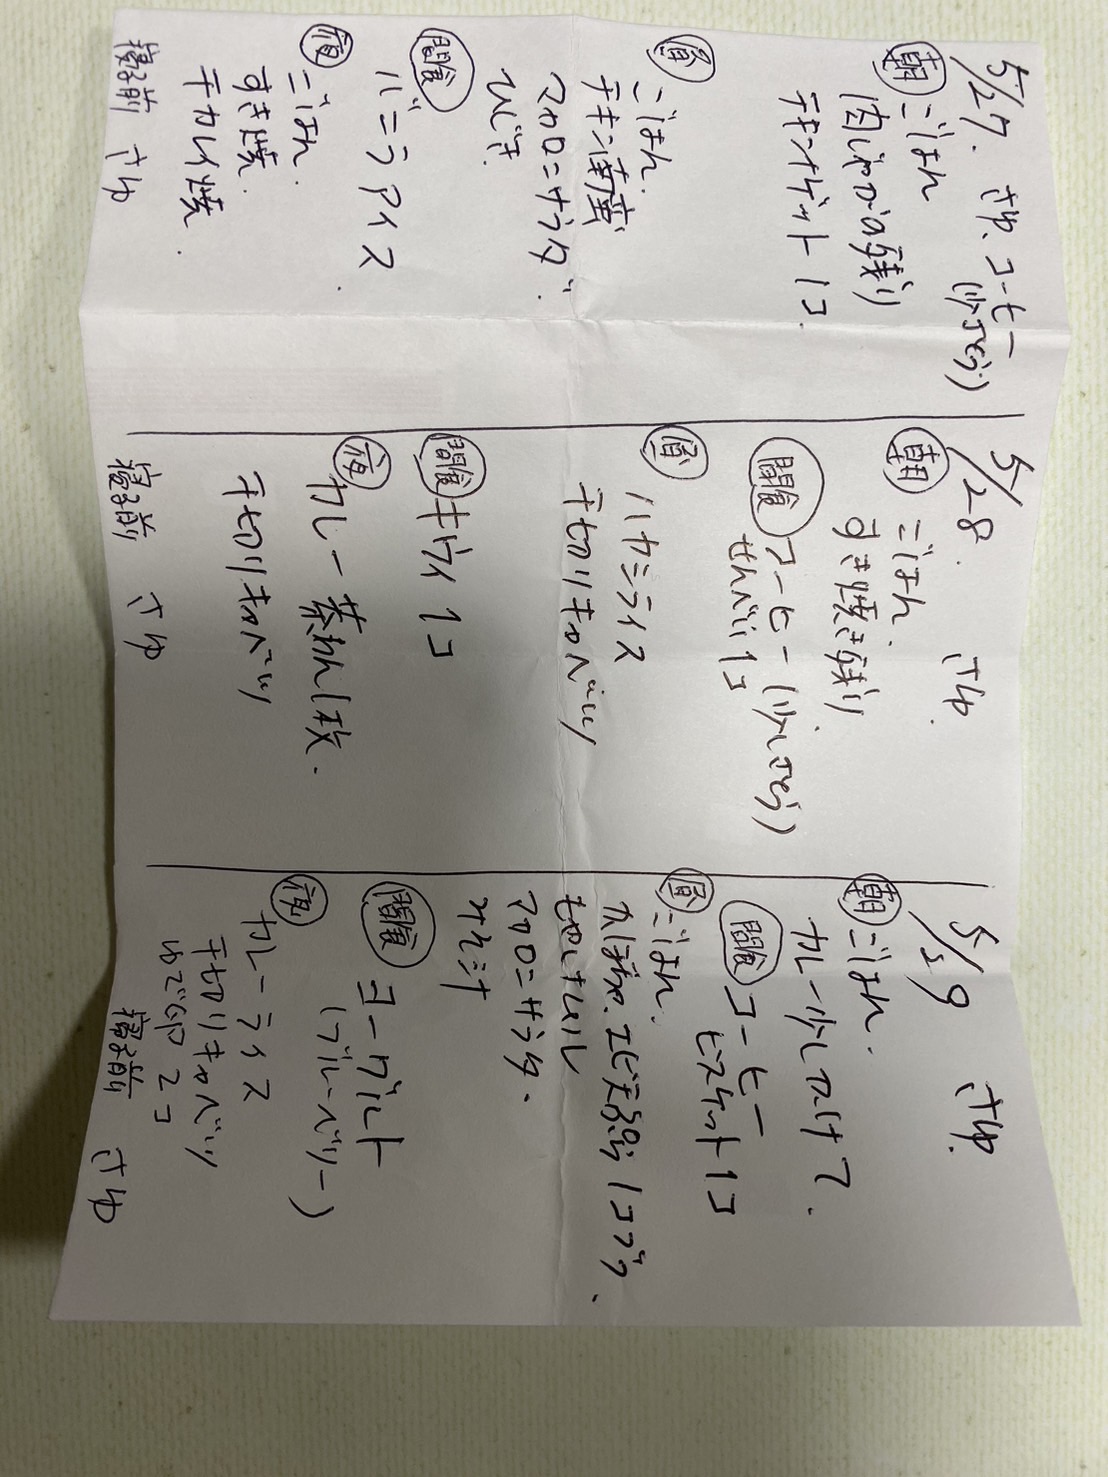 5/27. さゆ、コーヒー
(少さとう)
朝 ごはん
肉じゃがの残り
チキンナゲット 1コ.
昼 ごはん.
チキン南蛮
マカロニサラダ.
ひじき
間食 バニラアイス.
夜 ごはん.
すき焼.
チカレイ焼.
寝る前 さゆ
5/28. さゆ.
朝 ごはん.
すき焼き残り
間食 コーヒー(少しさとう)
せんべい1コ
昼 ハヤシライス
千切りキャベツ
間食 キウイ 1コ
夜 カレー 蒸れん1枚.
千切りキャベツ
寝る前 さゆ
5/29 さゆ.
朝 ごはん.
カレー少しかけて.
間食 コーヒー
ビスケット1コ
昼 ごはん.
かぼちゃ、エビ天ぷら 1コづつ、
もやしナムル
マカロニサラダ、
みそ汁
間食 ヨーグルト
(ブルーベリー)
夜 カレーライス
千切りキャベツ
ゆで卵 2コ
寝る前 さゆ